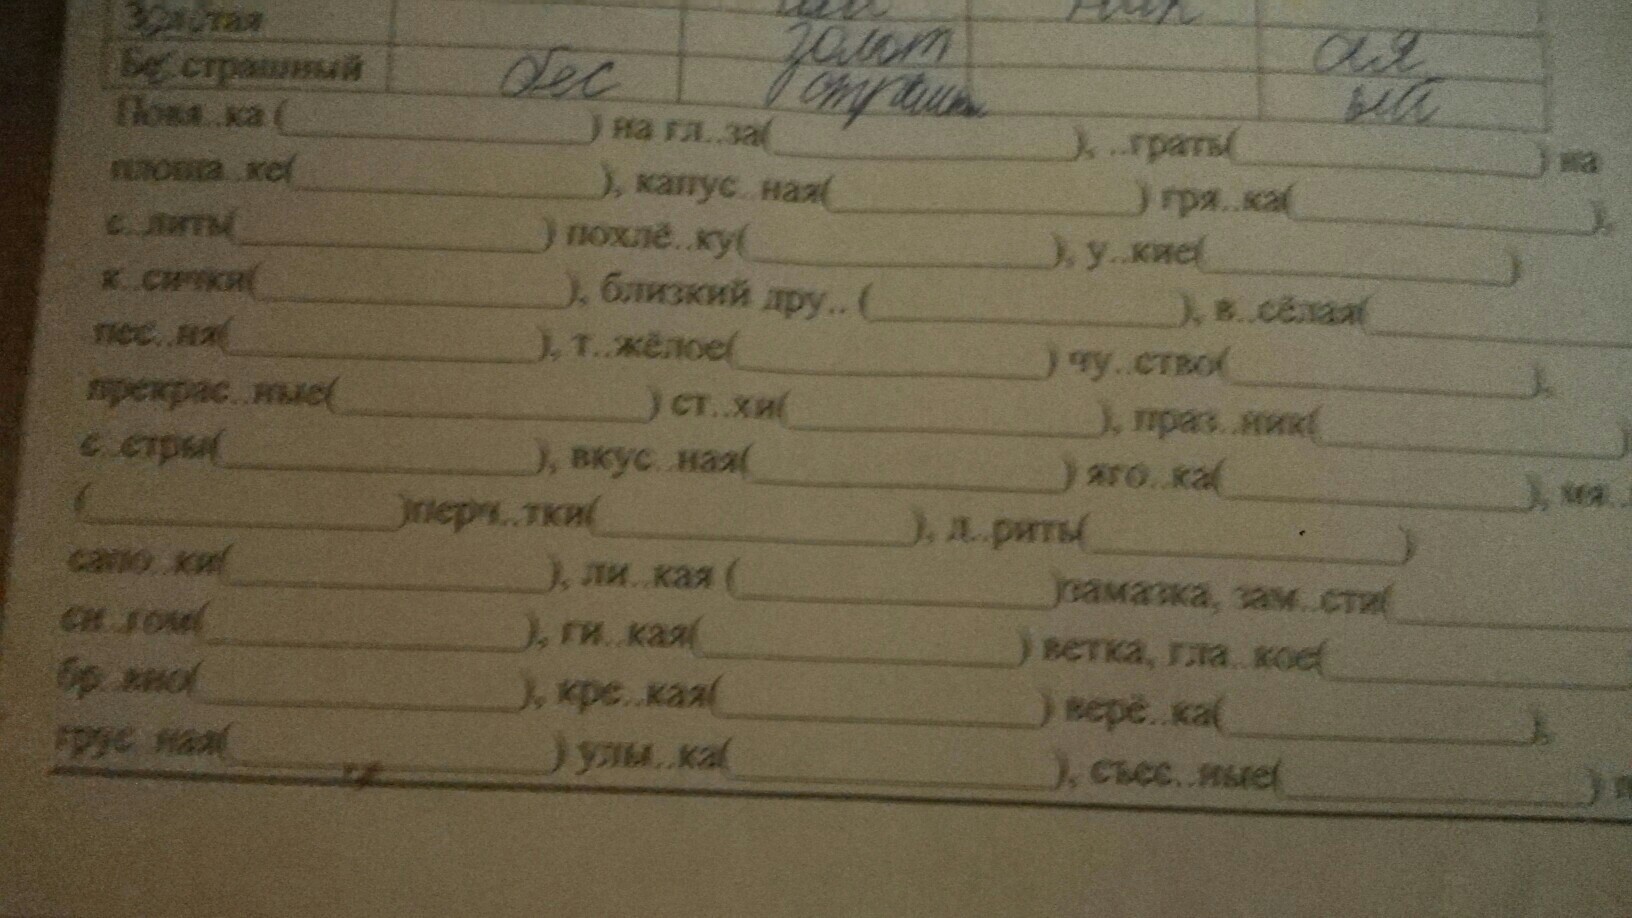 Золотая золот ая
Бесстрашный бес страшн ый
Повя..ка (____________) на гл..за(____________), ..грать(____________) на
площа..ке(____________), капус..ная(____________) гря..ка(____________),
с..лить(____________) похлё..ку(____________), у..кие(____________)
к..сички(____________), близкий дру.. (____________), в..сёлая(____________
пес..ня(____________), т..жёлое(____________) чу..ство(____________),
прекрас..ные(____________) ст..хи(____________), праз..ник(____________)
с..стры(____________), вкус..ная(____________) яго..ка(____________), мя..
(____________)перч..тки(____________), д..рить(____________)
сапо..ки(____________), ли..кая (____________)замазка, зам..сти(____________
сн..гом(____________), ги..кая(____________) ветка, гла..кое(____________
бр..вно(____________), кре..кая(____________) верё..ка(____________),
грус..ная(____________) улы..ка(____________), съес..ные(____________)